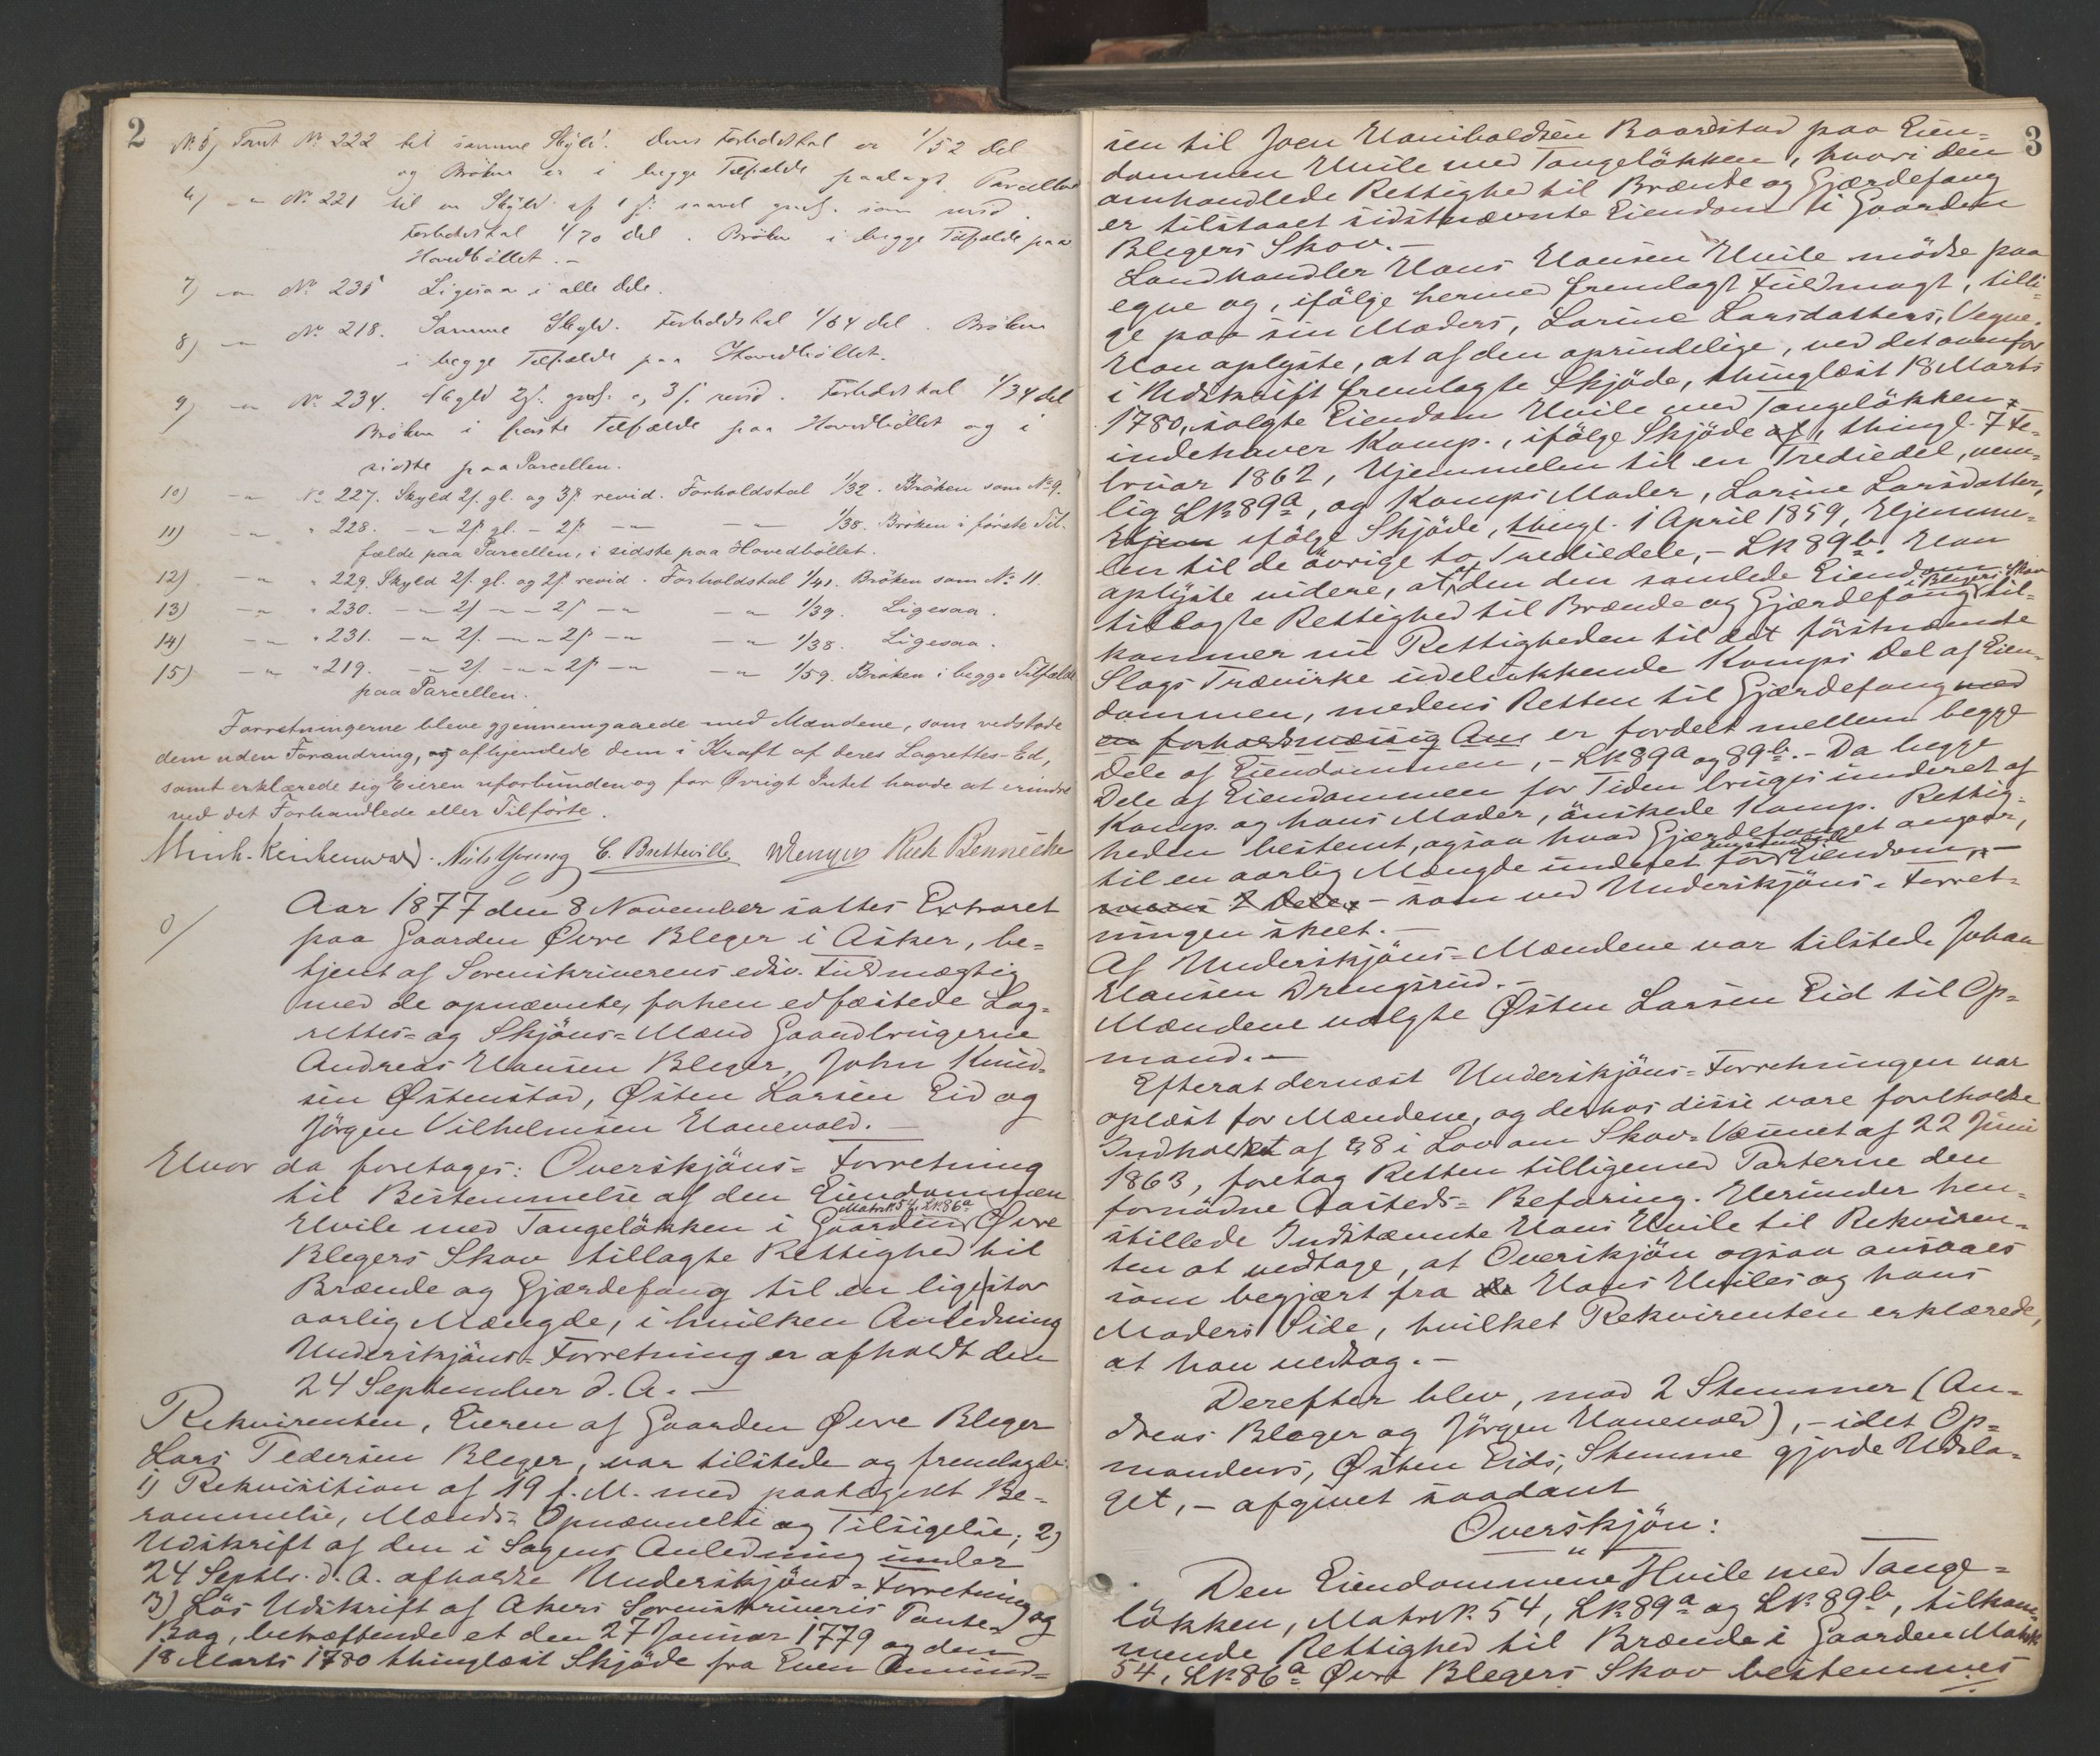 2
No 5) Tomt No 222 til samme Skyld. Dens Forholdstal er 1/52 del
og Brøken er i begge Tilfælde paalagt Parcellen
6) -"- No 221 til en Skyld af 1 s. saavel gml. som revid.
Forholdstal 1/70 del. Brøken i begge Tilfælde paa
Hovedbøllet.-
7) -"- No 235 Ligesaa i alle dele.
8) -"- No 218. Samme Skyld. Forholdstal 1/64 del. Brøken
i begge Tilfælde paa Hovedbøllet.
9) -"- No 234. Skyld 2s. gml. og 3s. revid. Forholdstal 1/34 del
Brøken i første Tilfælde paa Hovedbøllet og i
sidste paa Parcellen.
10) -"- No 227. Skyld 2s. gl. og 3s. revid. Forholdstal 1/32. Brøken som No 9.
11) -"- " 228. -"- 2s. gl. - 2s. -"- -"- 1/38. Brøken i første Til-
fælde paa Parcellen, i sidste paa Hovedbøllet.
12) -"- " 229. Skyld 2s. gl. og 2s. revid. Forholdstal 1/41. Brøken som No 11.
13) -"- " 230. -"- 2s. -"- 2s. -"- -"- 1/39. Ligesaa.
14) -"- " 231. -"- 2s. -"- 2s. -"- -"- 1/38. Ligesaa.
15) -"- " 219. -"- 2s. -"- 2s. -"- -"- 1/59. Brøken i begge Tilfælde
paa Parcellen.
Forretningerne bleve gjennemgaaede med Mændene, som vedstode
dem uden Forandring, og afhjemlede dem i Kraft af deres Lagrettes-Ed,
samt erklærede sig Eieren uforbunden og for Øvrigt Intet havde at erindre
ved det Forhandlede eller Tilførte.
Nils Young C. Bretteville Rich Bennecke
0/
Aar 1877 den 8 November sattes Extraret
paa Gaarden Øvre Bleger i Asker, be-
tjent af Sorenskriverens edsv. Fuldmægtig
med de opnævnte, forhen edfæstede Lag-
rettes- og Skjøns-Mænd Gaardbrugerne
Andreas Hansen Bleger, John Knud-
sen Østenstad, Østen Larsen Eid og
Jørgen Vilhelmsen Hanevold.-
Hvor da foretoges: Overskjøns-Forretning
til Bestemmelse af den Eiendommen
Matr. No 54, Lk. 86a
Hvile med Tangeløkken i Gaarden Øvre
Blegers Skov tillagte Rettighed til
Brænde og Gjærdefang til en lige stor
aarlig Mængde, i hvilken Anledning
Underskjøns-Forretning er afholdt den
24 September d. A.-
Rekvirenten, Eieren af Gaarden Øvre Bleger
Lars Pedersen Bleger, var tilstede og fremlagde:
1) Rekvisition af 19 f. M. med paategnet Be-
rammelse, Mænds-Opnævnelse og Tilsigelse; 2)
Udskrift af den i Sagens Anledning under
24 Septbr. d. A. afholdte Underskjøns-Forretning og
3) Løs Udskrift af Akers Sorenskriveris Pante-
Bog, betræffende et den 27 Januar 1779 og den
18 Marts 1780 thinglæst Skjøde fra Even Amund-
3
sen til Joen Haniboldsen Baardstad paa Eien-
dommen Hvile med Tangeløkken, hvori den
omhandlede Rettighed til Brænde og Gjærdefang
er tilstaaet sidstnævnte Eiendom i Gaarden
Blegers Skov.-
Landhandler Hans Hansen Hvile mødte paa
egne og, ifølge hermed fremlagt Fuldmagt, tilli-
ge paa sin Moders, Larine Larsdatters, Vegne.
Han oplyste, at af den oprindelige, ved det ovenfor
i Udskrift fremlagte Skjøde, thinglæst 18 Marts
1780, solgte Eiendom Hvile med Tangeløkken,
indehaver Komp., ifølge Skjøde af, thingl. 7 Fe-
bruar 1862, Hjemmelen til en Trediedel, nem-
lig Lk. 89a, og Komps Moder, Larine Larsdatter,
Hjem ifølge Skjøde, thingl. 1 April 1859, Hjemme-
len til de øvrige to Trediedele,- Lk 89b. Han
oplyste videre, at af den den samlede Eiendom
i Blegers Skov
tillagte Rettighed til Brænde og Gjærdefang til-
kommer nu Rettigheden til det førstnævnte
Slags Trævirke udelukkende Komps Del af Eien-
dommen, medens Retten til Gjærdefang med
en forholdsmæssig Am er fordelt mellem begge
Dele af Eiendommen,- Lk 89a og 89b.- Da begge
Dele af Eiendommen for Tiden bruges under et af
Komp. og hans Moder, ønskede Komp. Rettig-
heden bestemt, ogsaa hvad Gjærdefanget angaar,
til en aarlig Mængde under et for Eiendom,-
2 Dele,- som ved Underskjøns-Forret-
ningen skeet.-
Af Underskjøns-Mændene var tilstede Johan
Hansen Drengsrud.-
Mændene valgte Østen Larsen Eid til Op-
mand.-
Efterat dernæst Underskjøns-Forretningen var
oplæst for Mændene, og derhos disse vare foreholdte
Indholdet af § 8 i Lov om Skov-Væsenet af 22 Juni
1863, foretog Retten tilligemed Parterne den
fornødne Aasteds-Befaring. Herunder hen-
stillede Indstævnte Hans Hvile til Rekviren-
ten at vedtage, at Overskjøn ogsaa ansaaes
som begjært fra de Hans Hviles og hans
Moders Side, hvilket Rekvirenten erklærede,
at han vedtog.-
Derefter blev, mod 2 Stemmer (An-
dreas Bleger og Jørgen Hanevold),- idet Op-
mandens, Østen Eids, Stemme gjorde Udsla-
get,- afgivet saadant
Overskjøn:
Den Eiendommene Hvile med Tange-
løkken, Matr. No 54, Lk. 89a og Lk. 89b, tilkom-
mende Rettighed til Brænde i Gaarden Matr. No
54, Lk. 86a Øvre Blegers Skov bestemmes